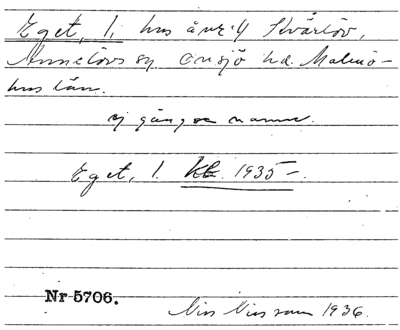 Eget, 1, hus å nr 4 Svärlöv,
Munkarps sn. Onsjö hd. Malmö-
hus län.
ej gängse namn.
Eget, 1. Kb. 1935 –.
Nr 5706.
Nils Nilsson 1936.